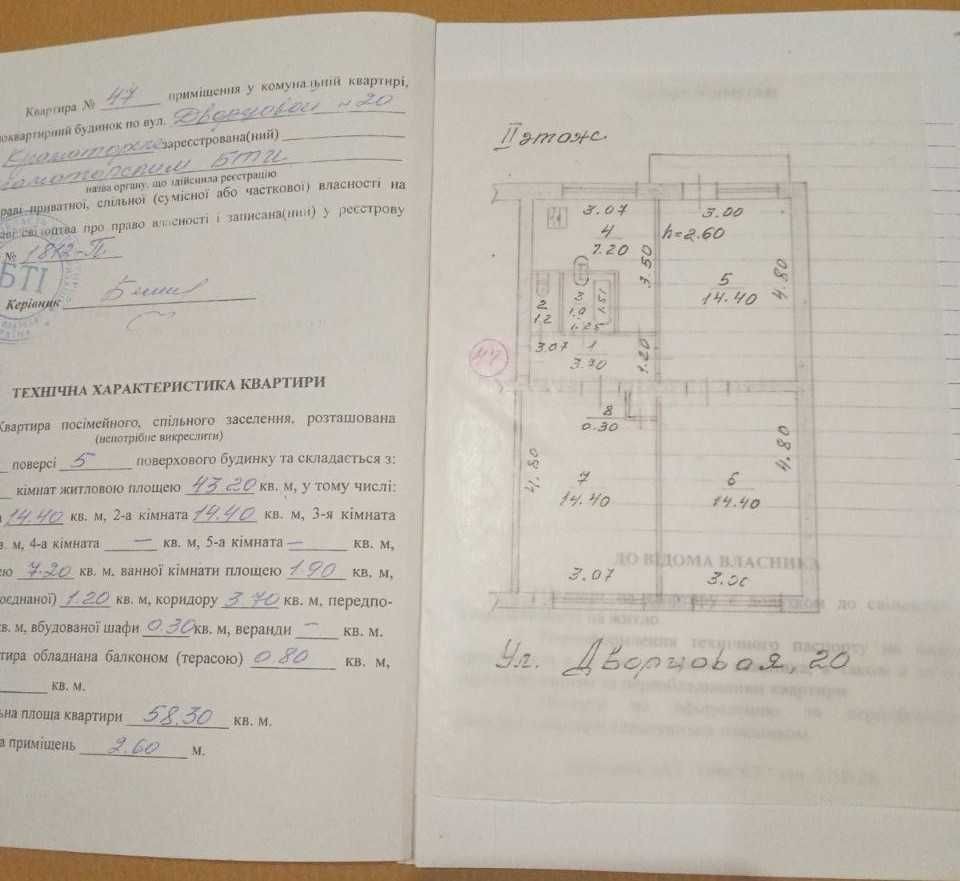 Квартира № 47 приміщення у комунальній квартирі,
оквартирний будинок по вул. Дворцовой 20
зареєстрована(ний)
БТИ
назва органу, що здійснила реєстрацію
раві приватної, спільної (сумісної або часткової) власності на
свідоцтва про право власності і записана(ний) у реєстрову
№ 1812-П
БТІ
Керівник
ТЕХНІЧНА ХАРАКТЕРИСТИКА КВАРТИРИ
Квартира посімейного, спільного заселення, розташована
(непотрібне викреслити)
поверсі 5 поверхового будинку та складається з:
кімнат житловою площею 43.20 кв. м, у тому числі:
14.40 кв. м, 2-а кімната 14.40 кв. м, 3-я кімната
в. м, 4-а кімната — кв. м, 5-а кімната — кв. м,
ею 7.20 кв. м. ванної кімнати площею 1.90 кв. м,
оєднаної) 1.20 кв. м, коридору 3.70 кв. м, передпо-
кв. м, вбудованої шафи 0.30 кв. м, веранди — кв. м.
тира обладнана балконом (терасою) 0.80 кв. м,
кв. м.
ьна площа квартири 58.30 кв. м.
а приміщень 2.60 м.
II этаж
3.07
3.00
4
7.20
h=2.60
3.50
5
14.40
4.80
2
1.2
3
1.9
1.51
1.25
3.07
1
3.70
1.20
47
8
0.30
4.80
7
14.40
6
14.40
4.80
3.07
3.00
ДО ВІДОМА ВЛАСНИКА
Ул. Дворцовая, 20